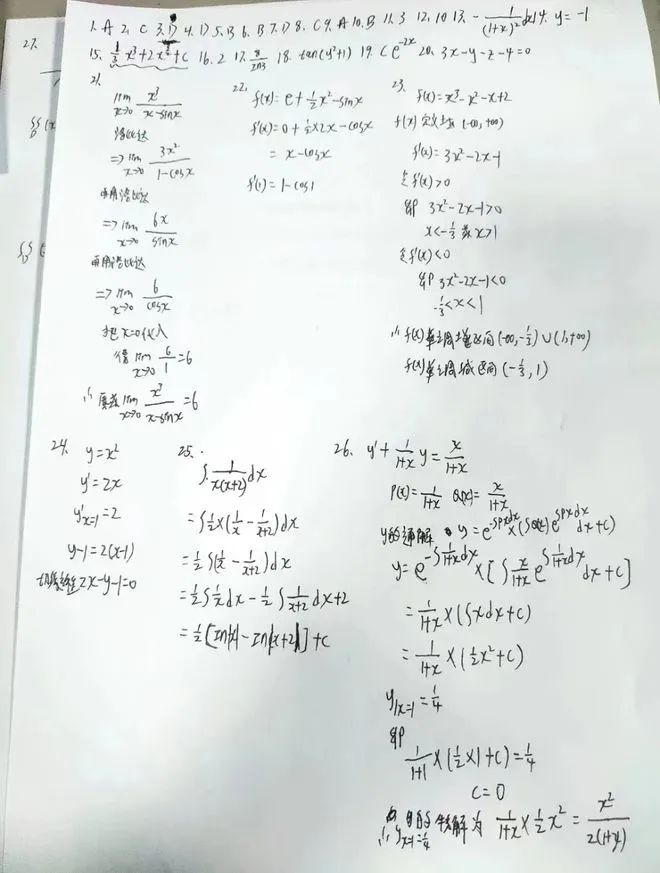 1. A 2. C 3. D 4. D 5. B 6. B 7. D 8. C 9. A 10. B 11. 3 12. 10 13. -1/(1+x)² dx 14. y=-1
15. 1/3x³+2x²+c 16. 2 17. 17. tan(y²+1) 19. Ce^(-2x) 20. 3x-y-z-4=0
21.
lim x→0 x³/(x-sinx)
洛必达
=> lim x→0 3x²/(1-cosx)
再用洛必达
=> lim x→0 6x/sinx
再用洛必达
=> lim x→0 6/cosx
把x=0代入
得 lim x→0 6/1=6
∴ 原式 lim x→0 x³/(x-sinx)=6
22. f(x)=e+1/2x²-sinx
f'(x)=0+1/2×2x-cosx
=x-cosx
f'(1)=1-cos1
23. f(x)=x³-x²-x+2
f(x)定义域(-∞,+∞)
f'(x)=3x²-2x-1
令f'(x)>0
即 3x²-2x-1>0
x<-1/3 或 x>1
令f'(x)<0
即 3x²-2x-1<0
-1/3<x<1
∴f(x)单调增区间(-∞,-1/3)∪(1,+∞)
f(x)单调减区间(-1/3,1)
24. y=x²
y'=2x
y'x=1=2
y-1=2(x-1)
2x-y-1=0
25.
∫1/(x(x+2))dx
=∫1/2×(1/x-1/(x+2))dx
=1/2∫(1/x-1/(x+2))dx
=1/2∫1/x dx-1/2∫1/(x+2)dx+2
=1/2[In|x|-In|x+2|]+c
26. y'+1/(1+x) y=x/(1+x)
P(x)=1/(1+x) Q(x)=x/(1+x)
y的通解 y=e^(-∫P(x)dx)×(∫Q(x)e^(∫P(x)dx)dx+c)
y=e^(-∫1/(1+x)dx)×[∫x/(1+x)e^(∫1/(1+x)dx)dx+c]
=1/(1+x)×(∫xdx+c)
=1/(1+x)×(1/2x²+c)
y|x=1=1/4
即
1/(1+1)×(1/2×1+c)=1/4
c=0
∴ y|x=1=1/4的特解为 1/(1+x)×1/2x²=x²/(2(1+x))
27.